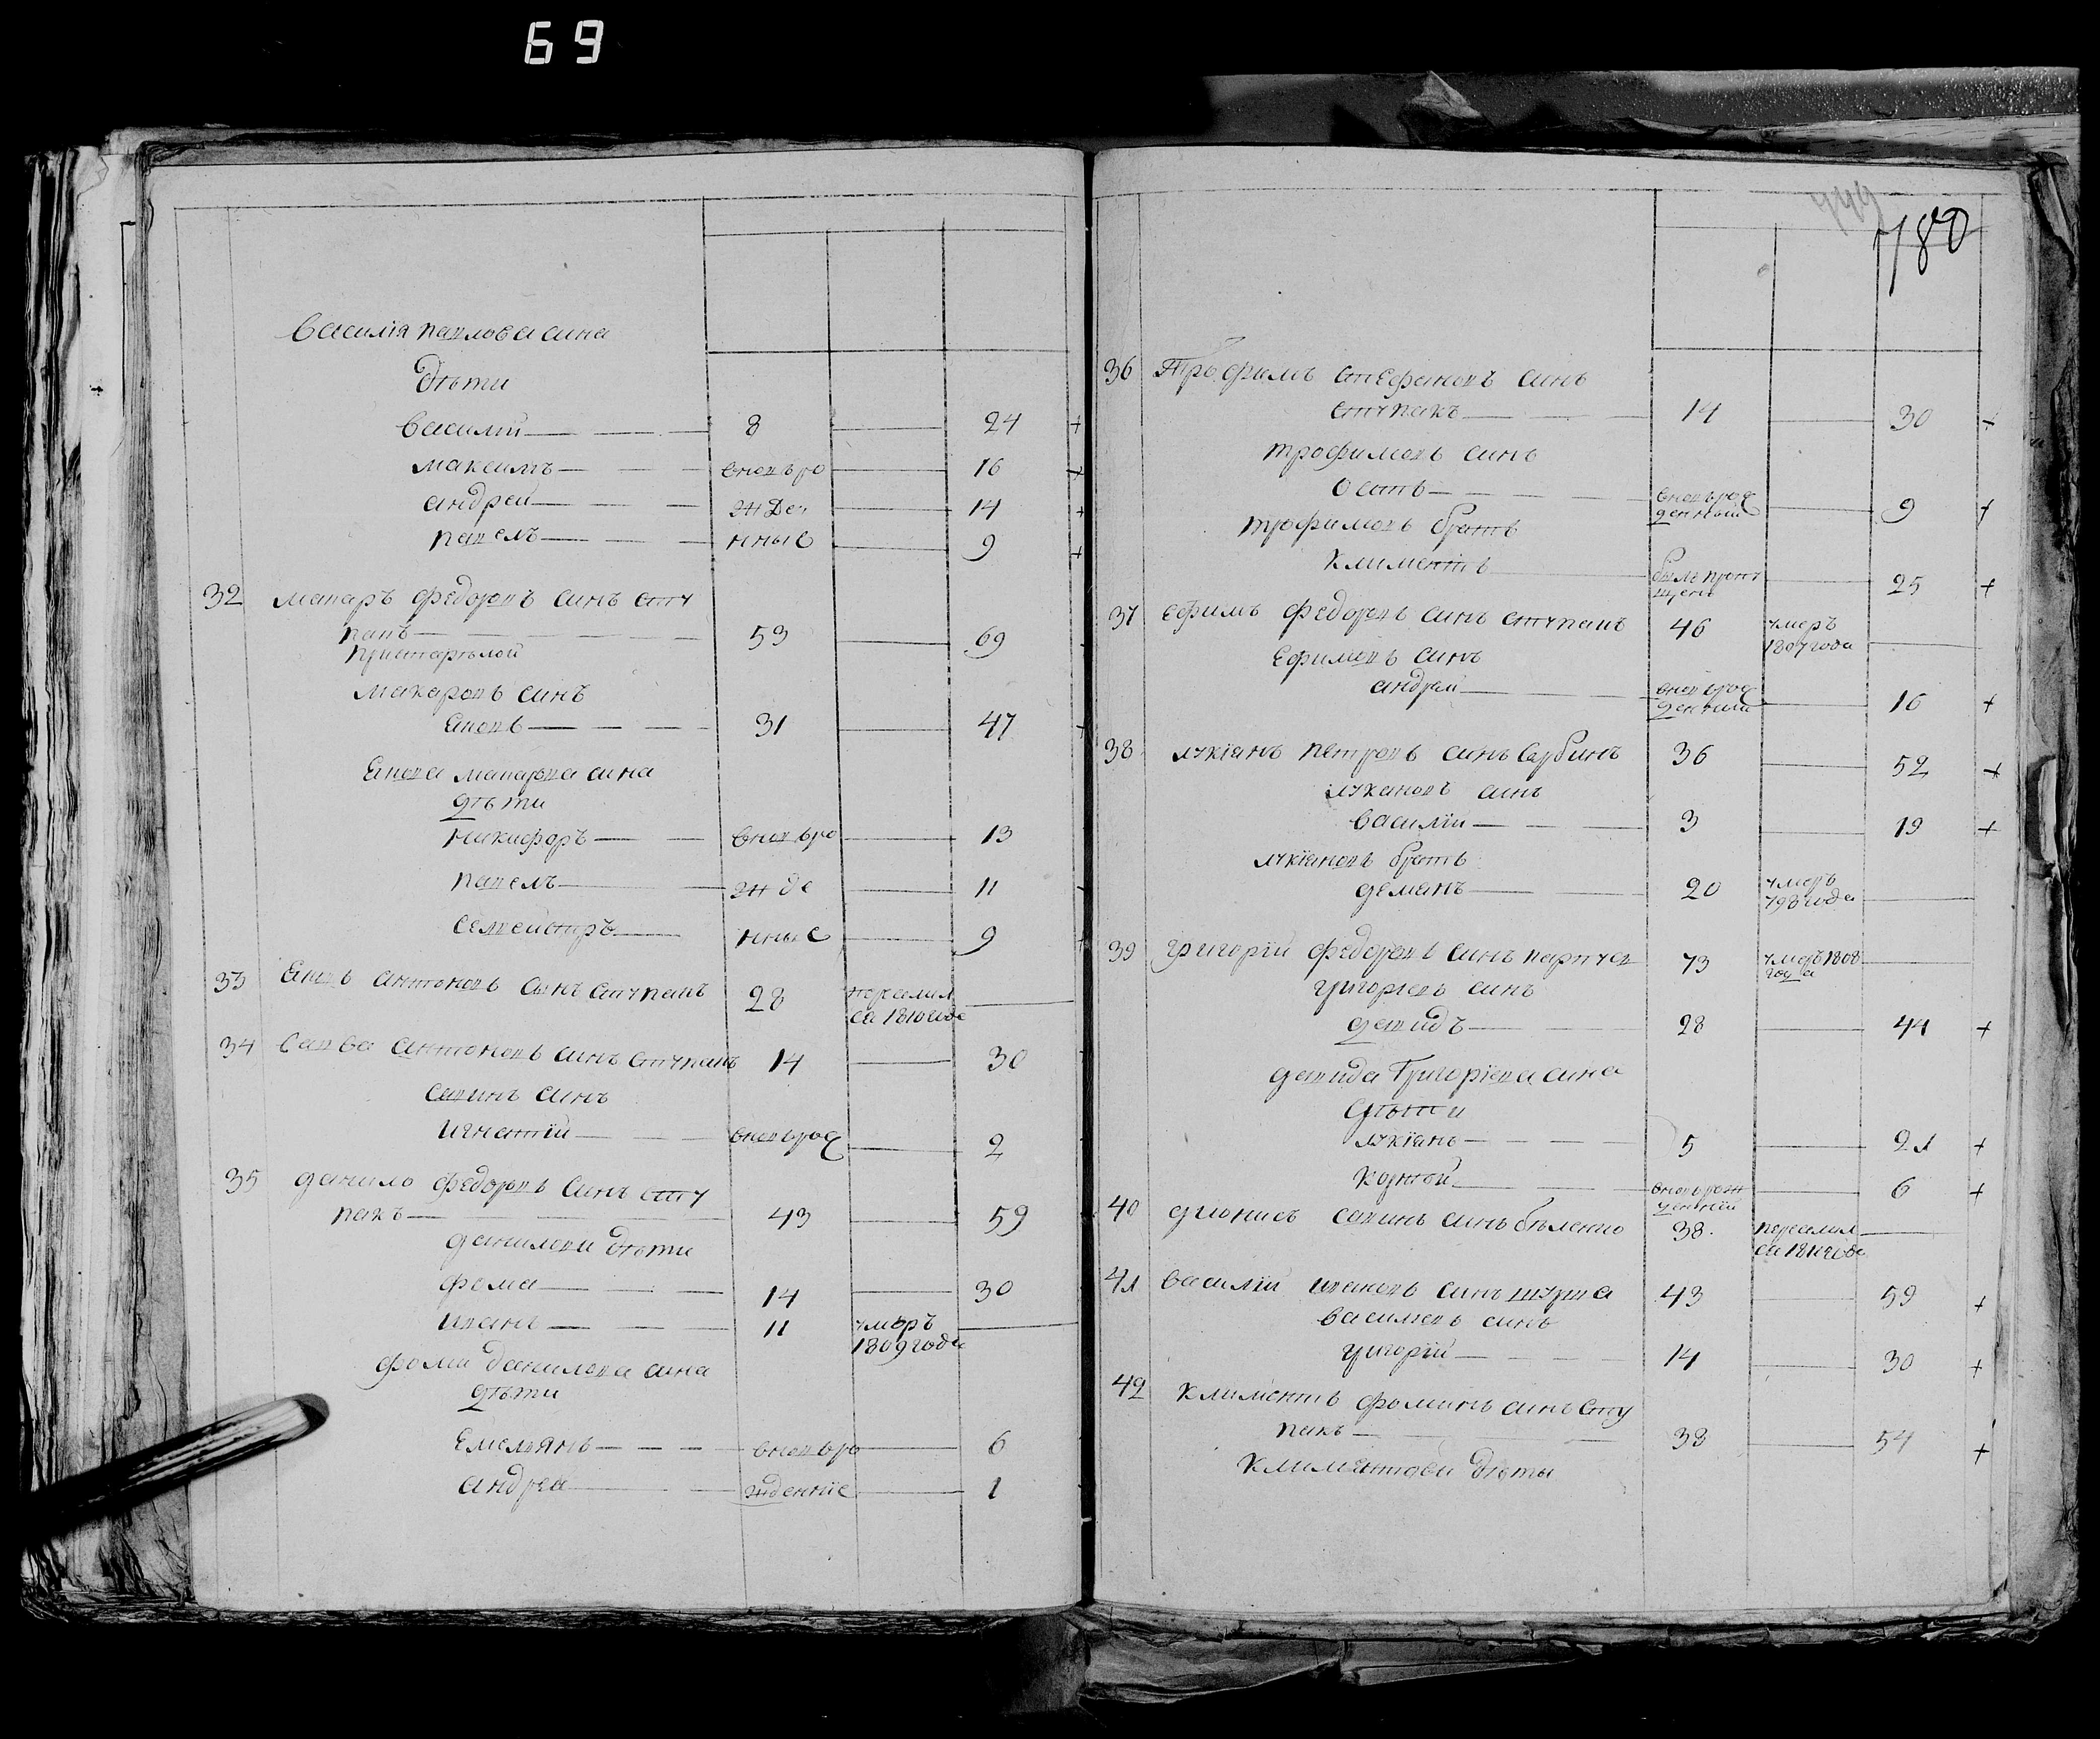 69
Василія павлова сина
дѣти
Василій 8 24 +
максимъ вновъро 16 +
андрей жде 14 +
павелъ нные 9 +
32 макаръ федоровъ синъ сту
пакъ 53 69
пристарѣлой
макаровъ синъ
Яковъ 31 47
Якова макарова сина
дѣти
никифоръ вновъро 13
павелъ жде 11
селвейстръ нные 9
33 Яковъ антоновъ синъ ступакъ 28 переселил
ся 1810 года
34 Савва антоновъ синъ ступакъ 14 30
савинъ синъ
игнатій вновърож 2
35 данило федоровъ синъ сту
пакъ 43 59
данилови дѣти
фома 14 30
иванъ 11 умеръ
1809 года
фоми данилова сина
дѣти
Емельянъ вновъро 6
андрей жденніе 1
780
36 Трофимъ стефановъ синъ
ступакъ 14 30 +
трофимовъ синъ
Осипъ вновърож
денный 9 +
трофимовъ братъ
климентъ былъ пропу
щенъ 25 +
37 Ефимъ федоровъ синъ ступакъ 46 умеръ
1807 года
Ефимовъ синъ
андрей вновърож
денный 16 +
38 лукіянъ петровъ синъ Сербинъ 36 52 +
лукяновъ синъ
Василій 3 19 +
лукіяновъ братъ
демянъ 20 умеръ
798 года
39 григорій федоровъ синъ 73 умеръ 1808
года
григоріевъ синъ
давидъ 28 44 +
давида Григоріева сина
дѣти
лукіянъ 5 21 +
корней вновърож
денній 6 +
40 діонисъ савинъ синъ бѣленко 38 переселил
ся 1811 года
41 василій ивановъ синъ шкурка 43 59 +
василіевъ синъ
григорій 14 30 +
42 климентъ фоминъ синъ Сту
пакъ 38 54 +
климентови дѣти